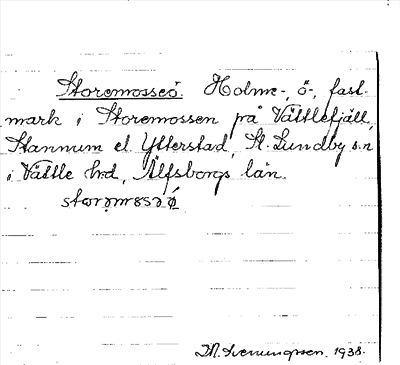 Storemosseö. Holme-, ö-, fast-
mark i Storemossen på Vättlefjäll,
Stannum el. Ytterstad, St. Lundby s:n
i Vättle hrd, Älfsborgs län.
1938.